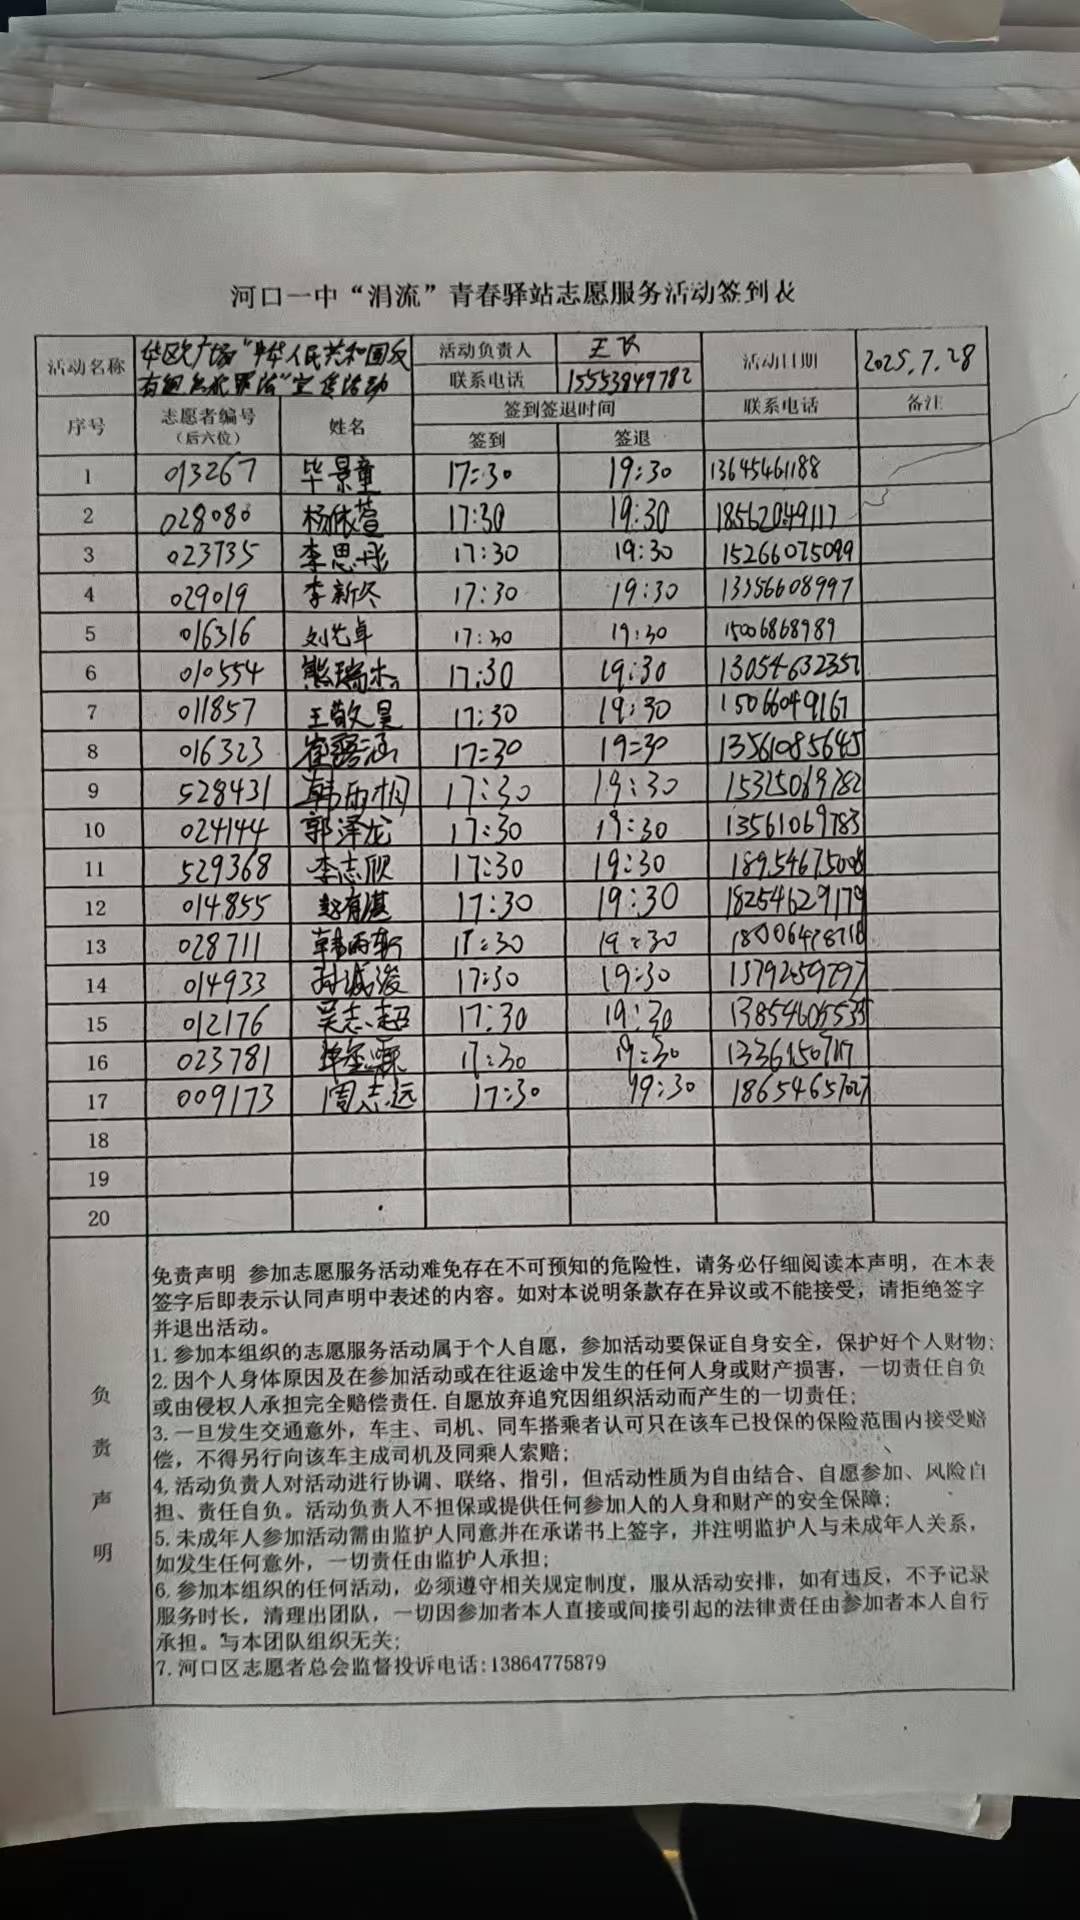 河口一中“涓流”青春驿站志愿服务活动签到表
活动名称 华欧广场“中华人民共和国反有组织犯罪法”宣传活动 活动负责人 王飞 活动日期 2025.7.28
联系电话 15553849782
序号 志愿者编号（后六位） 姓名 签到签退时间 联系电话 备注
签到 签退
1 013267 毕景童 17:30 19:30 13645461188
2 028080 杨依萱 17:30 19:30 18562049117
3 023735 李思彤 17:30 19:30 15266075099
4 029019 李新冬 17:30 19:30 13356608997
5 016316 刘艺卓 17:30 19:30 15006868989
6 010554 熊瑞杰 17:30 19:30 13054632352
7 011857 王敬文昊 17:30 19:30 15066049167
8 016323 崔露涵 17:30 19:30 13561085645
9 528431 韩雨桐 17:30 19:30 15325069782
10 024144 郭泽龙 17:30 19:30 13561069783
11 529368 李志欣 17:30 19:30 18954675008
12 014855 赵有湛 17:30 19:30 18254629179
13 028711 韩雨轩 17:30 19:30
14 014933 孙诚浚 17:30 19:30 13792597297
15 012176 吴志超 17:30 19:30 13854605533
16 023781 17:30 19:30
17 009173 周志远 17:30 19:30 18654657027
18
19
20
负责声明
免责声明 参加志愿服务活动难免存在不可预知的危险性，请务必仔细阅读本声明，在本表
签字后即表示认同声明中表述的内容。如对本说明条款存在异议或不能接受，请拒绝签字
并退出活动。
1.参加本组织的志愿服务活动属于个人自愿，参加活动要保证自身安全，保护好个人财物；
2.因个人身体原因及在参加活动或在往返途中发生的任何人身或财产损害，一切责任自负
或由侵权人承担完全赔偿责任.自愿放弃追究因组织活动而产生的一切责任；
3.一旦发生交通意外，车主、司机、同车搭乘者认可只在该车已投保的保险范围内接受赔
偿，不得另行向该车主成司机及同乘人索赔；
4.活动负责人对活动进行协调、联络、指引，但活动性质为自由结合、自愿参加、风险自
担、责任自负。活动负责人不担保或提供任何参加人的人身和财产的安全保障；
5.未成年人参加活动需由监护人同意并在承诺书上签字，并注明监护人与未成年人关系，
如发生任何意外，一切责任由监护人承担；
6.参加本组织的任何活动，必须遵守相关规定制度，服从活动安排，如有违反，不予记录
服务时长，清理出团队，一切因参加者本人直接或间接引起的法律责任由参加者本人自行
承担。与本团队组织无关；
7.河口区志愿者总会监督投诉电话:13864775879